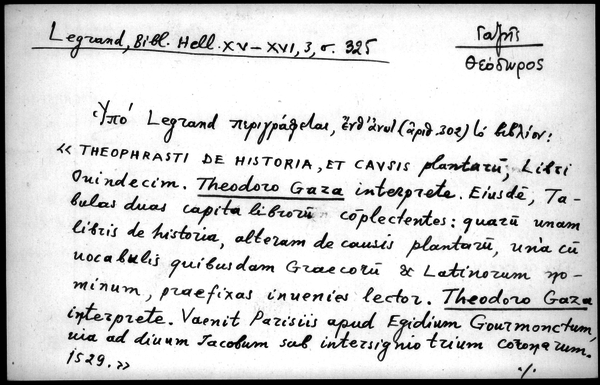 Legrand, Bibl. Hell. XV–XVI, 3, σ. 325
Γαζῆς
Θεόδωρος
Ὑπό Legrand περιγράφεται, (ἀριθ. 302) τό βιβλίον:
« THEOPHRASTI DE HISTORIA, ET CAVSIS plantarū, Libri
Quindecim. Theodoro Gaza interprete. Eiusdē, Ta-
bulas duas capita librorū cōplectentes: quarū unam
libris de historia, alteram de causis plantarū, una cū
uocabulis quibusdam Graecorū & Latinorum no-
minum, praefixas inuenies lector. Theodoro Gaza
interprete. Vaenit Parisiis apud Egidium Gourmonctum,
uia ad diuum Jacobum sub intersignio trium coronarum.
1529. »
./.